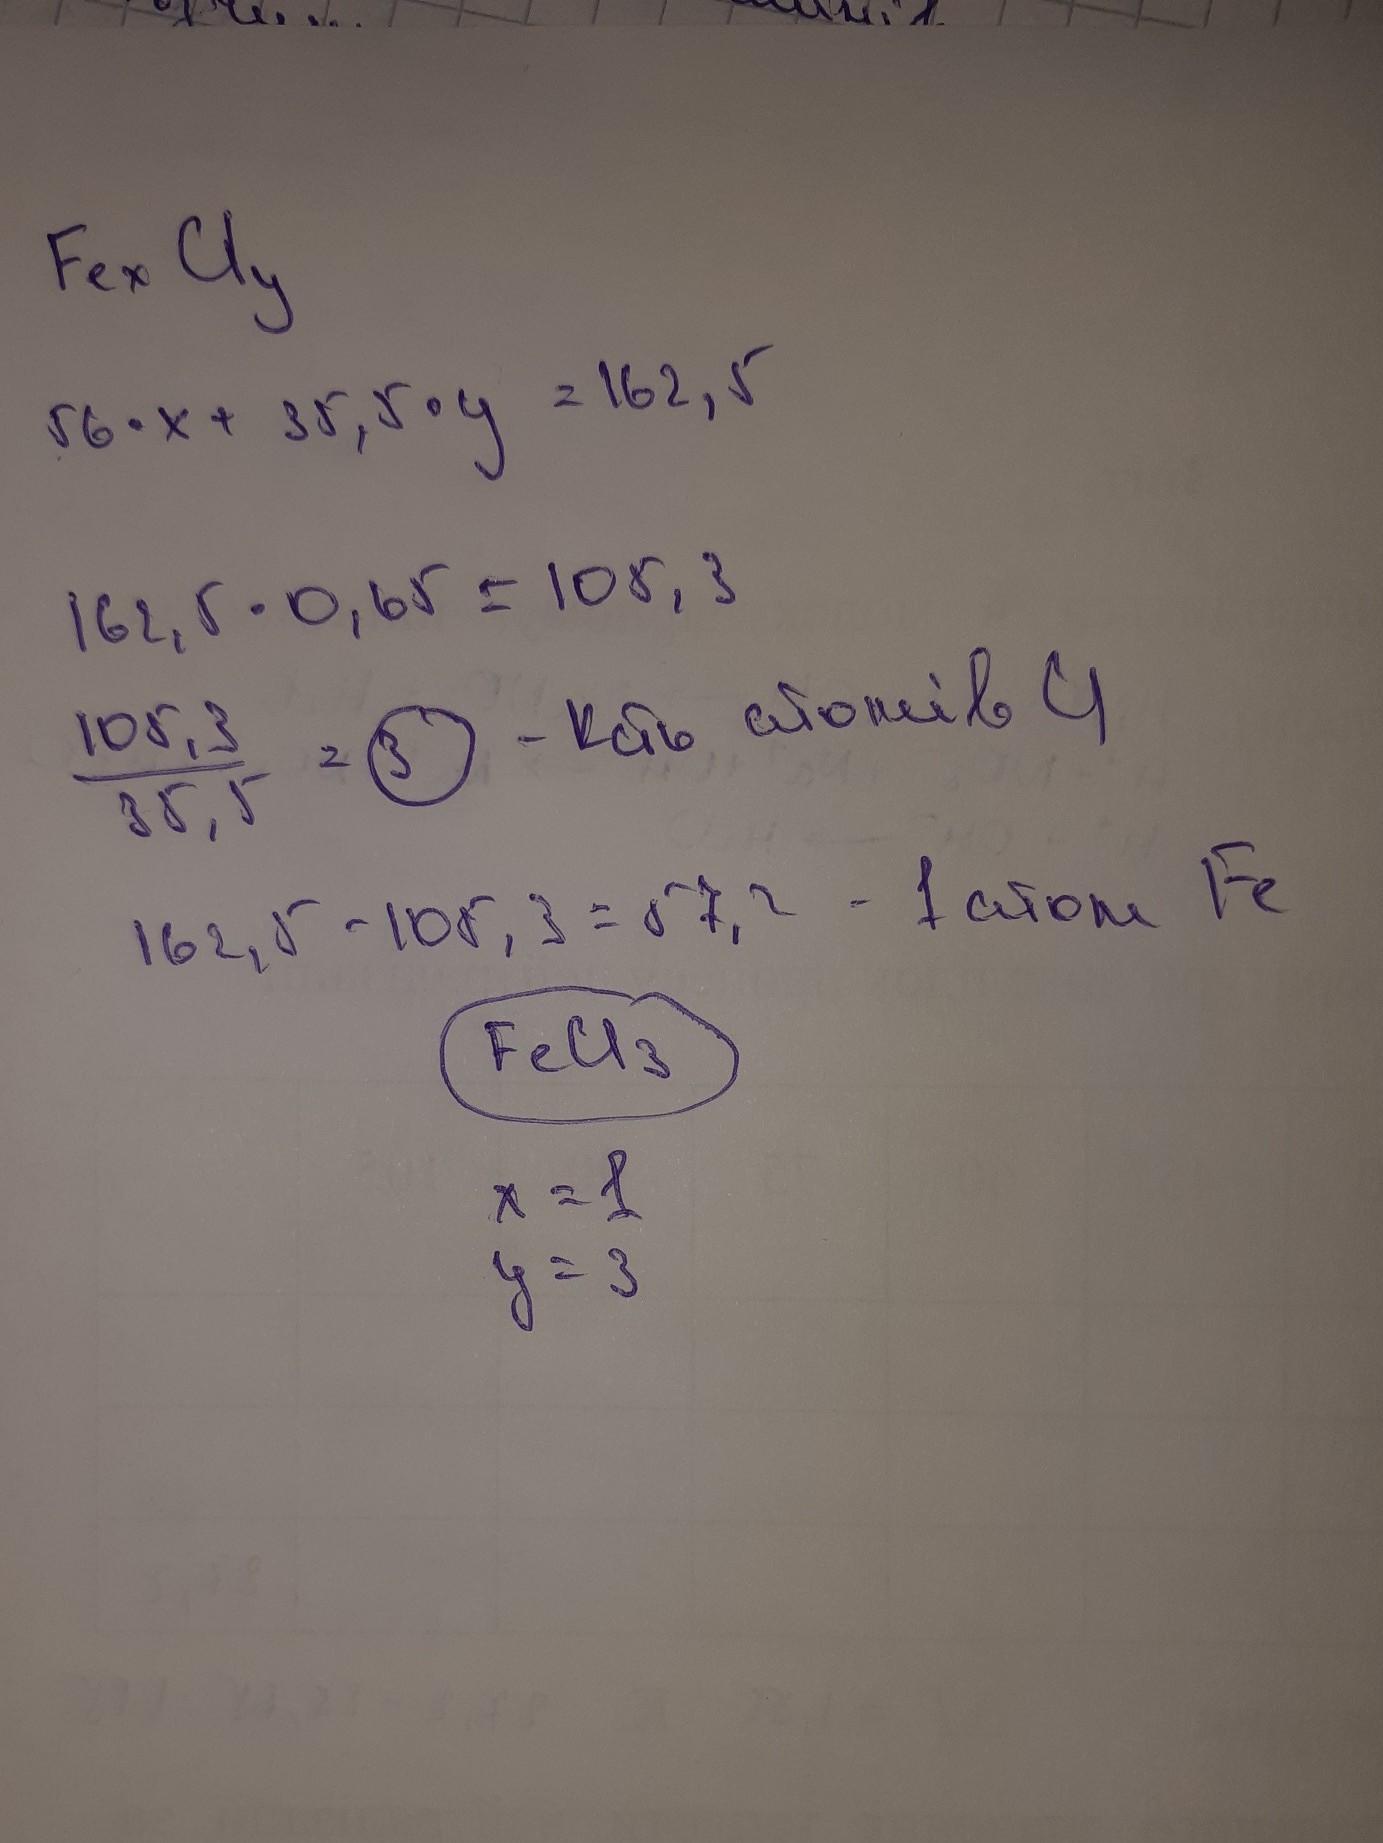 FexCly
56·x+ 35,5·y =162,5
162,5·0,65=105,3
105,3
35,5
= 3 - К-сть атомів Cl
162,5-105,3=57,2 - 1 атом Fe
FeCl3
x=1
y=3